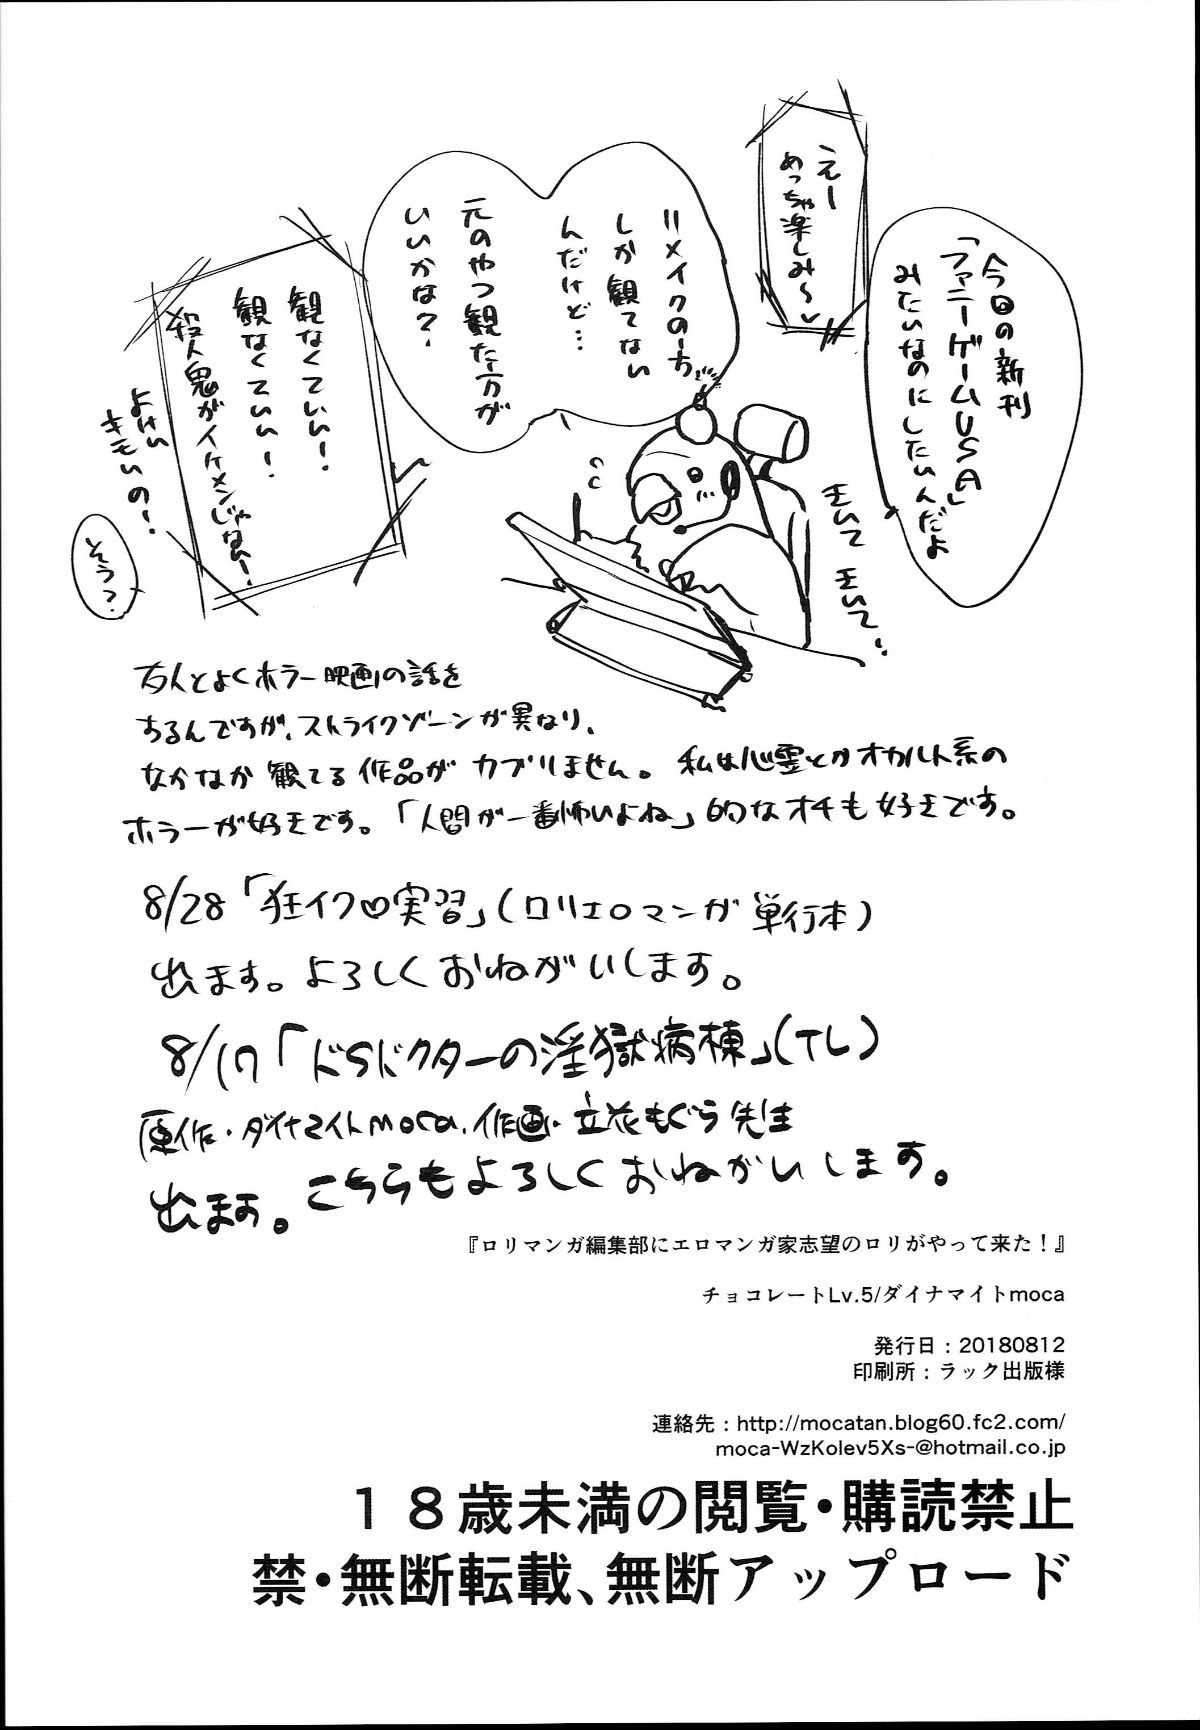 今回の新刊
「ファニーゲームUSA」
みたいなのにしたいんだよ
えー
めっちゃ楽しみ〜♡
リメイクの方
しか観てない
んだけど…
元のやつ観た方が
いいかな?
観なくていい!
観なくていい!
殺人鬼がイケメンじゃない!
よけい
キモいの!
そう?
友人とよくホラー映画の話を
するんですが、ストライクゾーンが異なり、
なかなか観てる作品がカブりません。私は心霊とかオカルト系の
ホラーが好きです。「人間が一番怖いよね」的なオチも好きです。
8/28「狂イク♡実習」(ロリエロマンガ単行本)
出ます。よろしくおねがいします。
8/17「ドSドクターの淫獄病棟」(TL)
原作・ダイナマイトmoca、作画・立花もぐら先生
出ます。こちらもよろしくおねがいします。
『ロリマンガ編集部にエロマンガ家志望のロリがやって来た!』
チョコレートLv.5/ダイナマイトmoca
発行日:20180812
印刷所:ラック出版様
連絡先:http://mocatan.blog60.fc2.com/
moca-WzKolev5Xs-@hotmail.co.jp
18歳未満の閲覧・購読禁止
禁・無断転載、無断アップロード